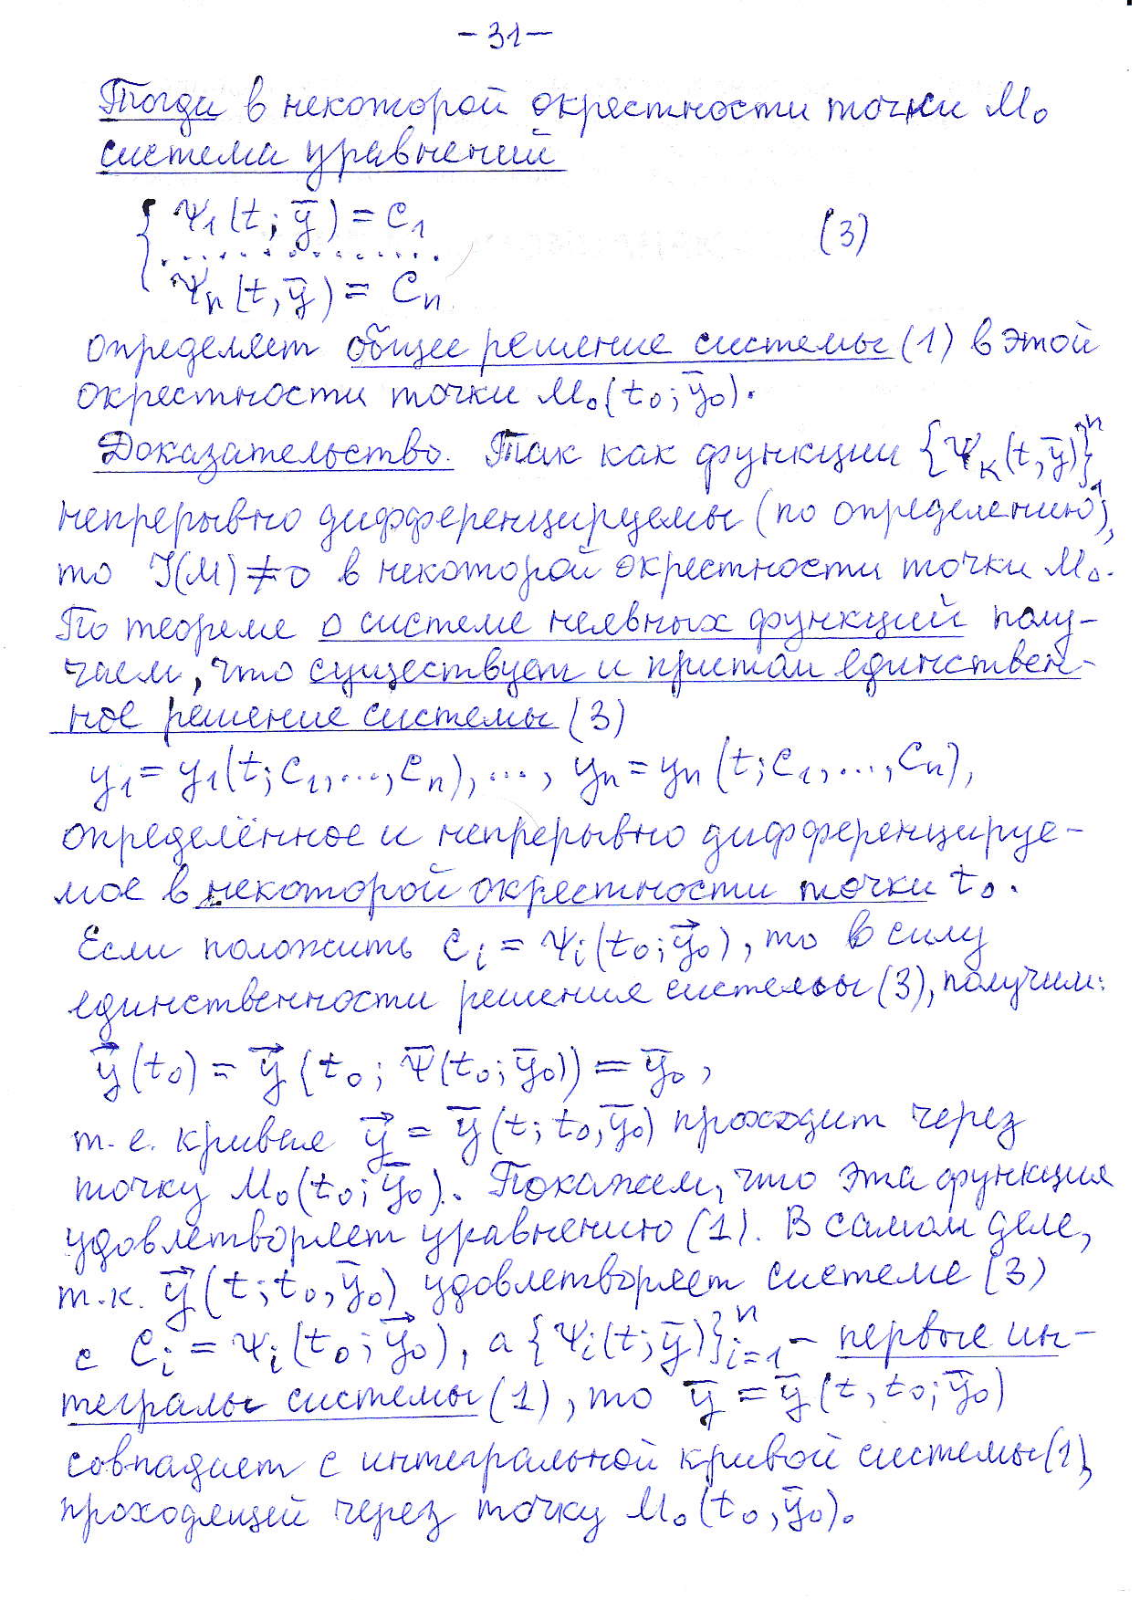 – 31 –
Тогда в некоторой окрестности точки M₀
система уравнений
{ Ψ₁(t; ȳ) = C₁
. . . . . . . . . . . . (3)
Ψₙ(t, ȳ) = Cₙ
определяет общее решение системы (1) в этой
окрестности точки M₀(t₀; ȳ₀).
Доказательство. Так как функции {Ψₖ(t, ȳ)}₁ⁿ
непрерывно дифференцируемы (по определению),
то J(M) ≠ 0 в некоторой окрестности точки M₀.
По теореме о системе неявных функций полу-
чаем, что существует и притом единствен-
ное решение системы (3)
y₁ = y₁(t; C₁, ..., Cₙ), ..., yₙ = yₙ(t; C₁, ..., Cₙ),
определённое и непрерывно дифференцируе-
мое в некоторой окрестности точки t₀.
Если положить Cᵢ = Ψᵢ(t₀; y⃗₀), то в силу
единственности решения системы (3), получим:
y⃗(t₀) = y⃗(t₀; Ψ̄(t₀; ȳ₀)) = ȳ₀,
т. е. кривая y⃗ = ȳ(t; t₀, ȳ₀) проходит через
точку M₀(t₀; ȳ₀). Покажем, что эта функция
удовлетворяет уравнению (1). В самом деле,
т.к. y⃗(t; t₀, ȳ₀) удовлетворяет системе (3)
с Cᵢ = Ψᵢ(t₀; y⃗₀), а {Ψᵢ(t; ȳ)}ᵢ₌₁ⁿ – первые ин-
тегралы системы (1), то ȳ = ȳ(t, t₀; ȳ₀)
совпадает с интегральной кривой системы (1),
проходящей через точку M₀(t₀, ȳ₀).